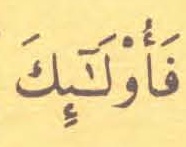 فَأُوْلَـٰٓئِكَ